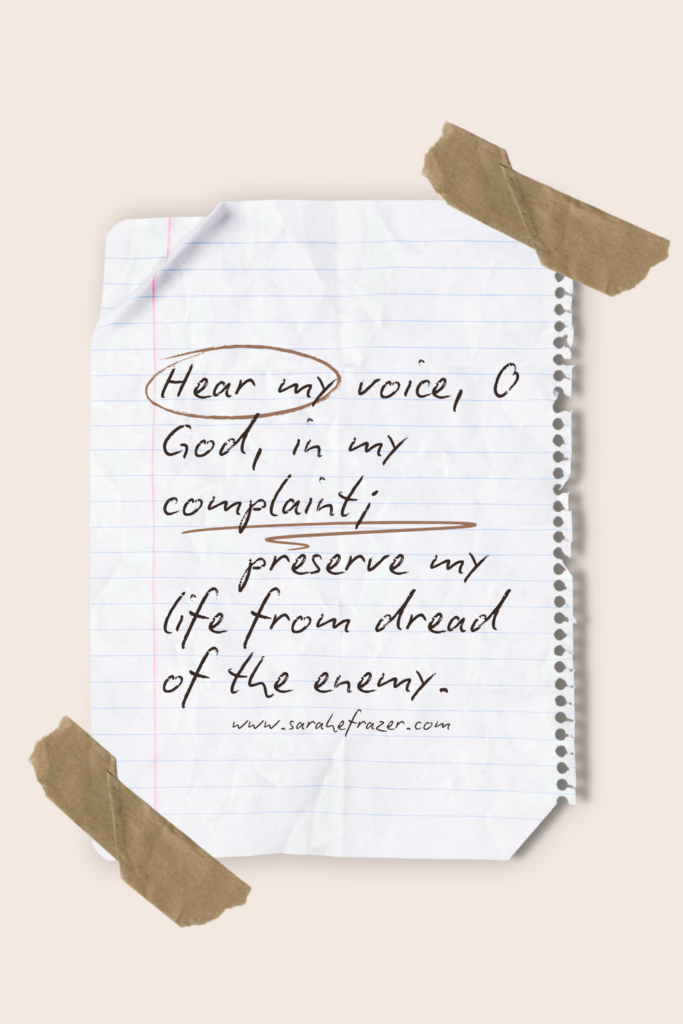 Hear my voice, O
God, in my
complaint;
preserve my
life from dread
of the enemy.
www.sarahefrazer.com